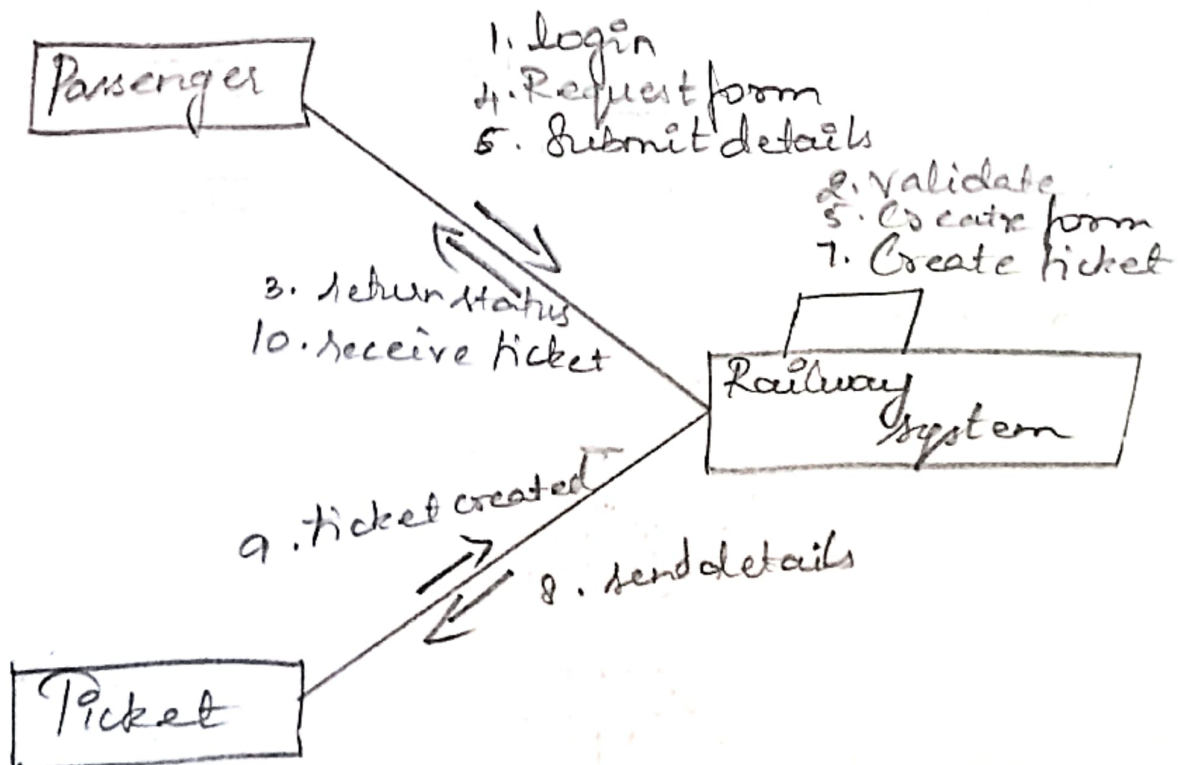 Passenger
1. login
4. Request form
5. Submit details
2. validate
5. Create form
7. Create ticket
3. return status
10. receive ticket
Railway
system
9. ticket created
8. send details
Ticket